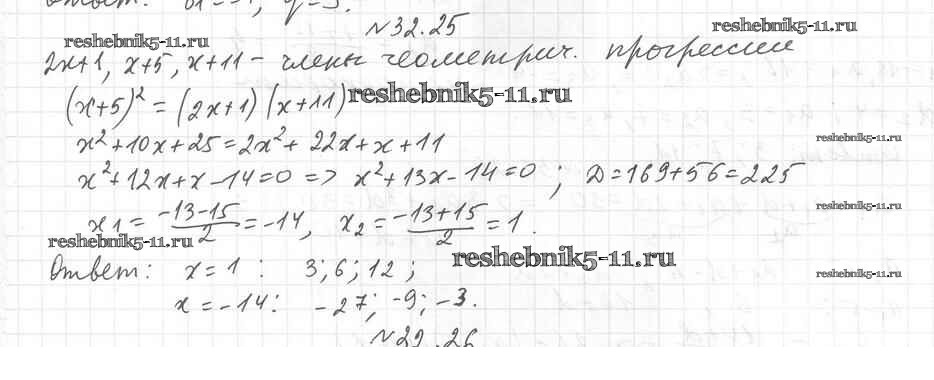 Ответ: 
№32.25
reshebnik5-11.ru reshebnik5-11.ru
2x+1, x+5, x+11 - члены геометрич. прогрессии
(x+5)² = (2x+1)(x+11) reshebnik5-11.ru
x²+10x+25=2x²+22x+x+11 reshebnik5-11.ru
x²+12x+x-14=0 => x²+13x-14=0; D=169+56=225
reshebnik5-11.ru
x₁ = (-13-15)/2 = -14, x₂ = (-13+15)/2 = 1.
reshebnik5-11.ru reshebnik5-11.ru
Ответ: x=1 : 3; 6; 12;
reshebnik5-11.ru
x=-14: -27; -9; -3.